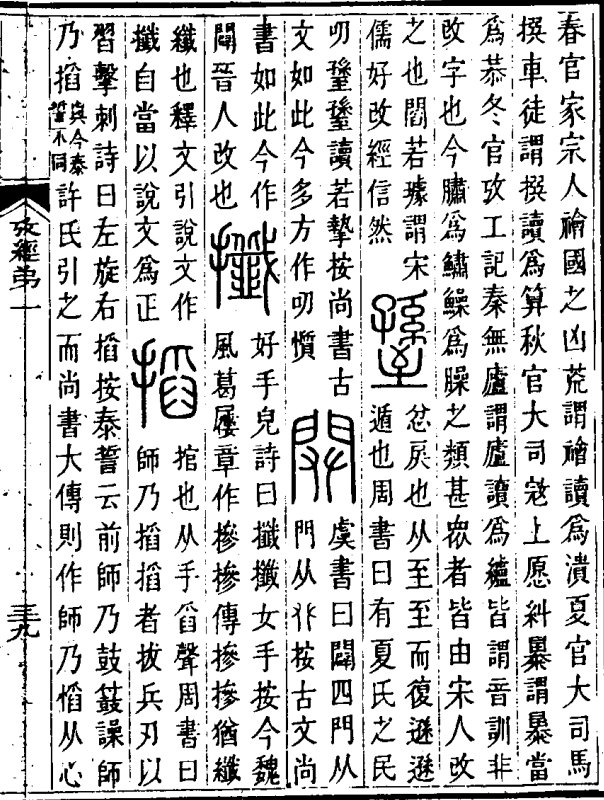 春官家宗人禬國之凶荒謂禬讀為潰夏官大司馬
撰車徒謂撰讀爲算秋官大司寇上愿糾暴謂暴當
爲恭冬官攷工記秦無廬謂廬讀爲纑皆謂音訓非
改字也今臕爲鱐鱢爲臊之類甚衆者皆由宋人改
之也閻若璩謂宋儒好改經信然
𦤶忿戾也从至至而復遜遜遁也周書曰有夏氏之民
叨𦤶𦤶讀若摯按尚書古文如此今多方作叨懫
門虞書曰闢四門从門从𠬜按古文尚
書如此今作闢晉人改也
攕好手皃詩曰攕攕女手按今魏風葛屨章作摻摻傳摻摻猶纖
纖也釋文引說文作攕自當以說文爲正
搯搯也从手舀聲周書曰師乃搯搯者拔兵刃以
習擊刺詩曰左旋右搯按泰誓云前師乃鼓鼓譟師
乃搯與今泰誓不同許氏引之而尚書大傳則作師乃慆从心
攷經弟一
三九